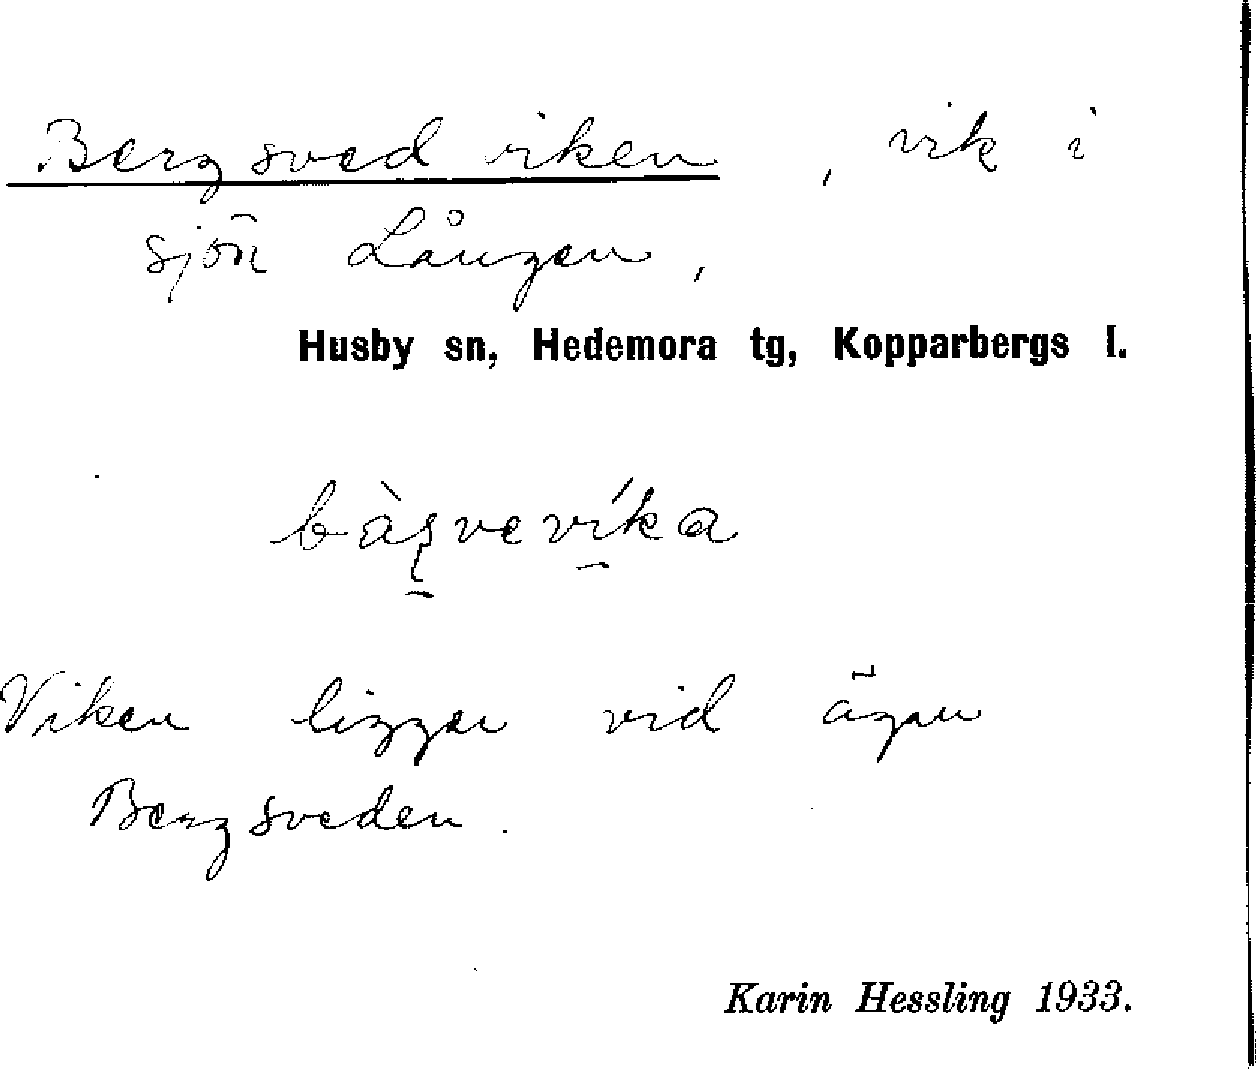 Bergsvedviken, vik i
sjön Lången,
Husby sn, Hedemora tg, Kopparbergs l.
Viken ligger vid ägan
Bergsveden.
Karin Hessling 1933.